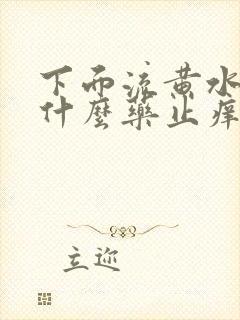 下面流黄水
什麼藥止痒
立迎